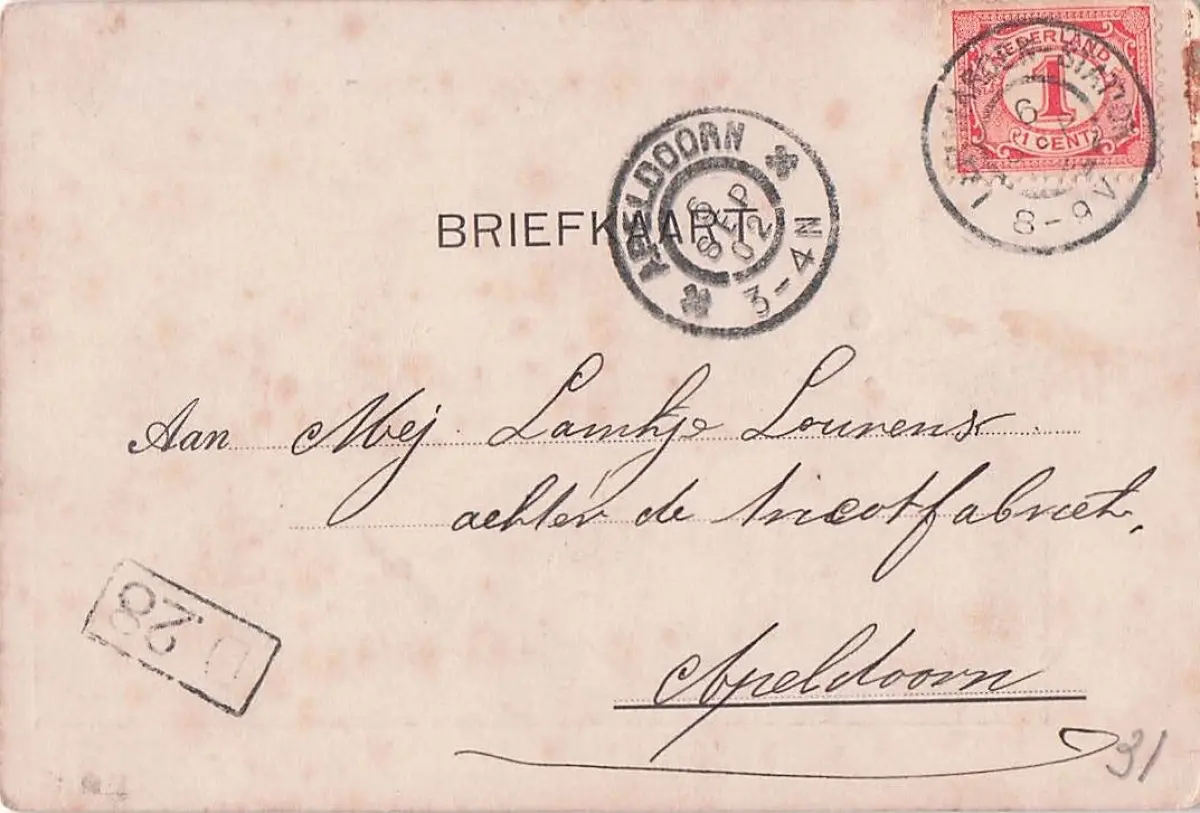 NEDERLAND
1
1 CENT
STATION
6
8-9V
APELDOORN
6
SEP
02
3-4N
BRIEFKAART
Aan Mej Lamkje Lourens
achter de tricotfabriek,
Apeldoorn
D 28
31